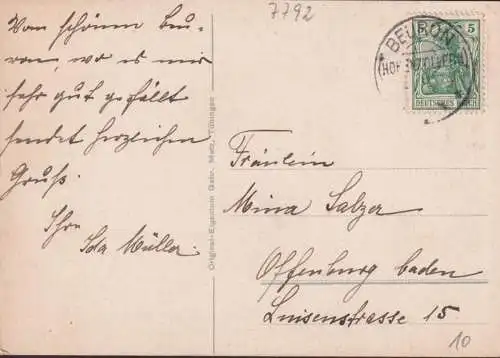 7792
Vom schönen Beu-
ron, wo es mir
sehr gut gefällt
sendet herzlichen
Gruß.
Ihre
Ida Müller.
Original-Eigentum Gebr. Metz, Tübingen
5
DEUTSCHES REICH
BEURON
(HOHENZOLLERN)
Fräulein
Mina Salzer
Offenburg baden
Luisenstrasse 15
10